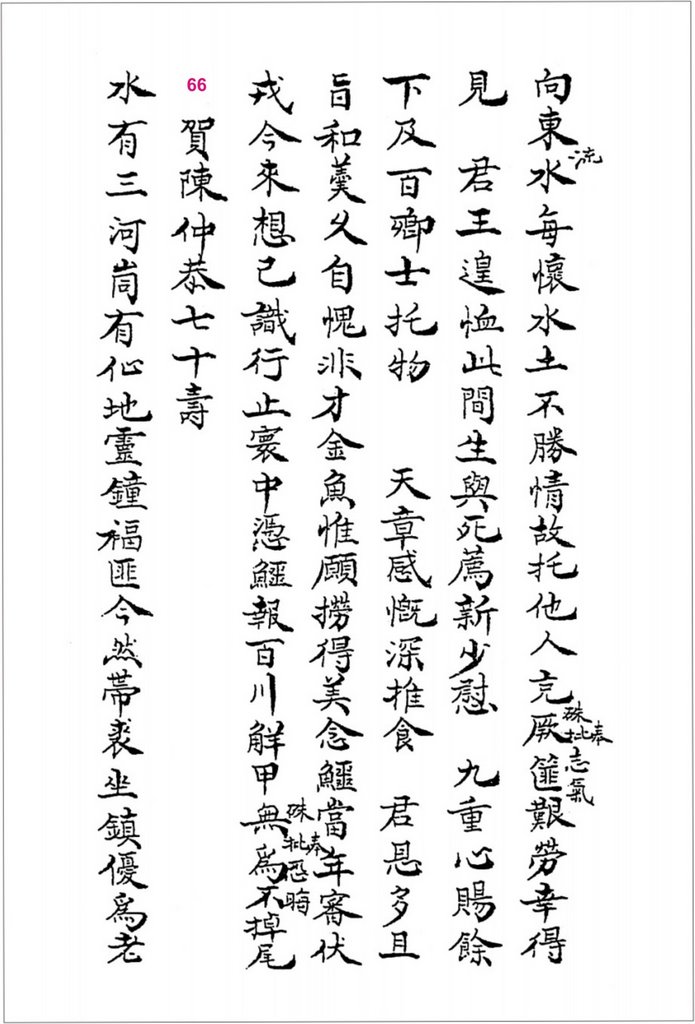 向東水每懷水土不勝情故托他人充厥篚艱勞幸得
流
硃批奉
志氣
見 君王遑恤此間生與死薦新少慰 九重心賜餘
下及百卿士托物 天章感慨深推食 君恩多且
旨和羹久自愧非才金魚惟願撈得美念鱷當年審伏
戎今來想已識行止寰中憑鱷報百川解甲無爲不掉尾
硃批奉
悉晦
66
賀陳仲恭七十壽
水有三河岗有仙地靈鐘福匪今然帶裘坐鎮優爲老